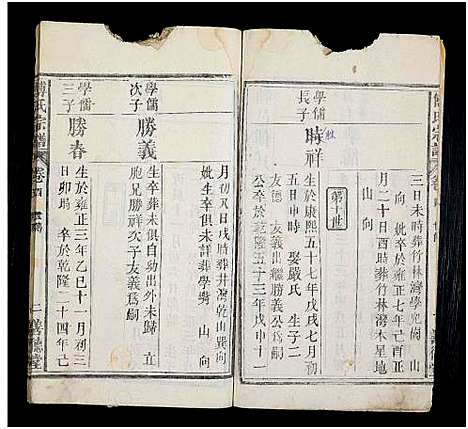 三日未時葬竹林灣學兜
向 妣卒於雍正七年己酉正
月二十日酉時葬竹林灣木星地
山向
第十世
學儒
長子
時祥
生於康熙五十七年戊戌七月初
五日申時 娶嚴氏 生子二
友德 友義出繼勝義公為嗣
公卒於乾隆五十三年戊申十一
月初八日戌時葬井灣乾山巽向
妣生卒俱未詳葬學
山向
學儒
次子
勝義
生卒葬未俱自幼出外未歸 立
胞兄勝祥次子友義為嗣
學儒
三子
勝春
生於雍正三年乙巳十一月初三
日卯時 卒於乾隆二十四年己
傅氏宗譜